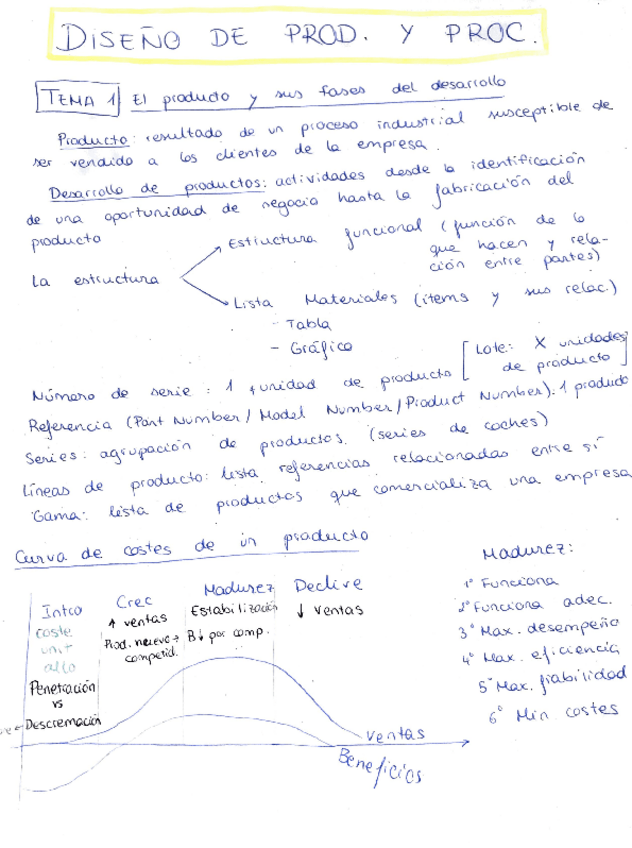 DISEÑO DE PROD. Y PROC.
TEMA 1 El producto y sus fases del desarrollo
Producto: resultado de un proceso industrial susceptible de
ser vendido a los clientes de la empresa.
Desarrollo de productos: actividades desde la identificación
de una oportunidad de negocio hasta la fabricación del
producto
La estructura
Estructura funcional (función de lo
que hacen y rela-
ción entre partes)
Lista Materiales (items y sus relac.)
- Tabla
- Gráfico
[Lote: X unidades
de producto]
Número de serie: 1 unidad de producto
Referencia (Part Number/Model Number/Product Number): 1 producto
Series: agrupación de productos. (series de coches)
Líneas de producto: lista referencias relacionadas entre sí
Gama: lista de productos que comercializa una empresa
Curva de costes de un producto
Intro
coste
unit
alto
Penetración
vs
Descremación
Crec
↑ ventas
Prod. nuevo →
competid.
Madurez
Estabilización
B↓ por comp.
Declive
↓ ventas
Ventas
Beneficios
Madurez:
1º Funciona
2º Funciona adec.
3º Max. desempeño
4º Max. eficiencia
5º Max. fiabilidad
6º Min costes